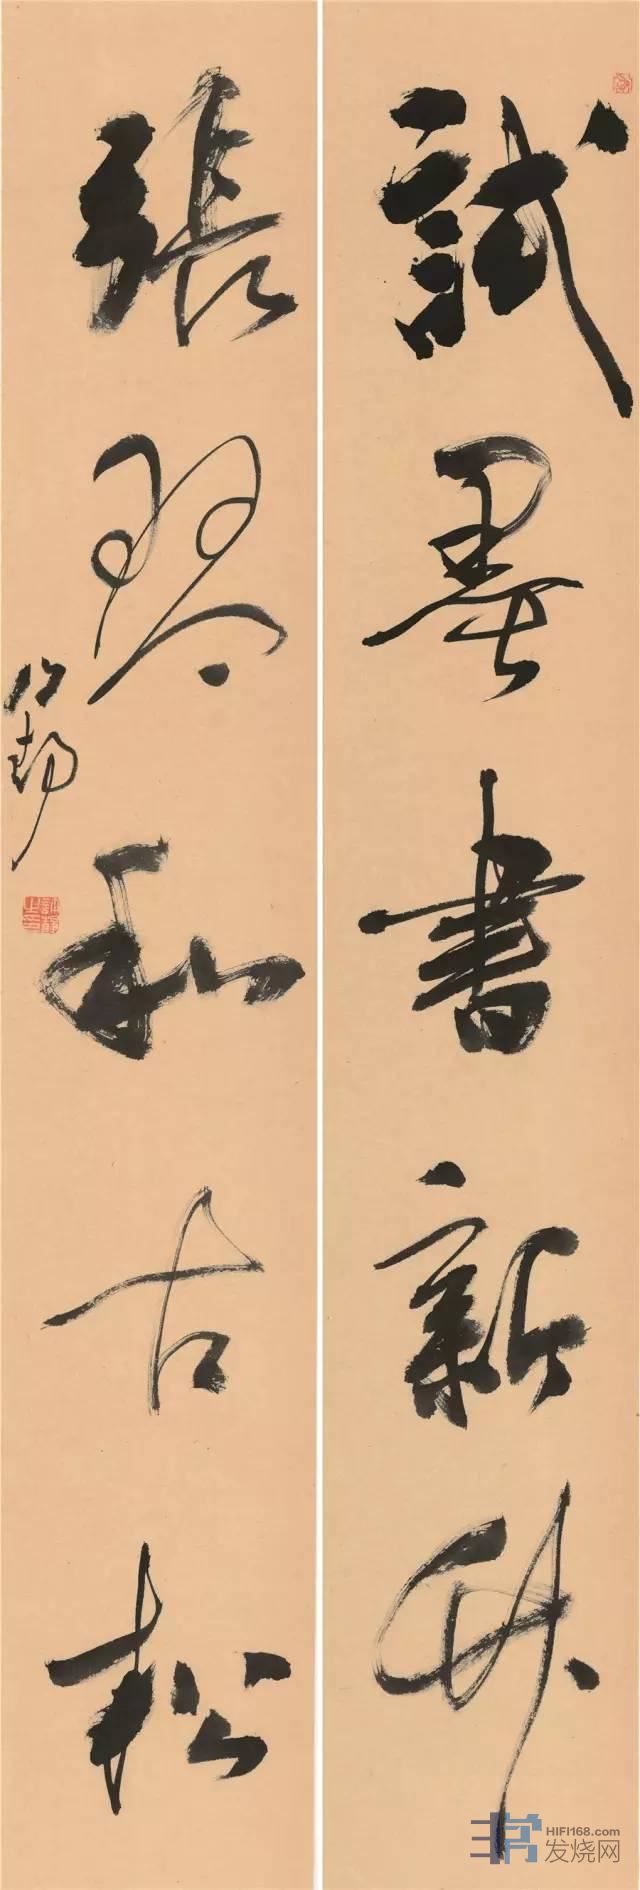 試墨書新竹
張琴和古松
HIFI168.com
发烧网